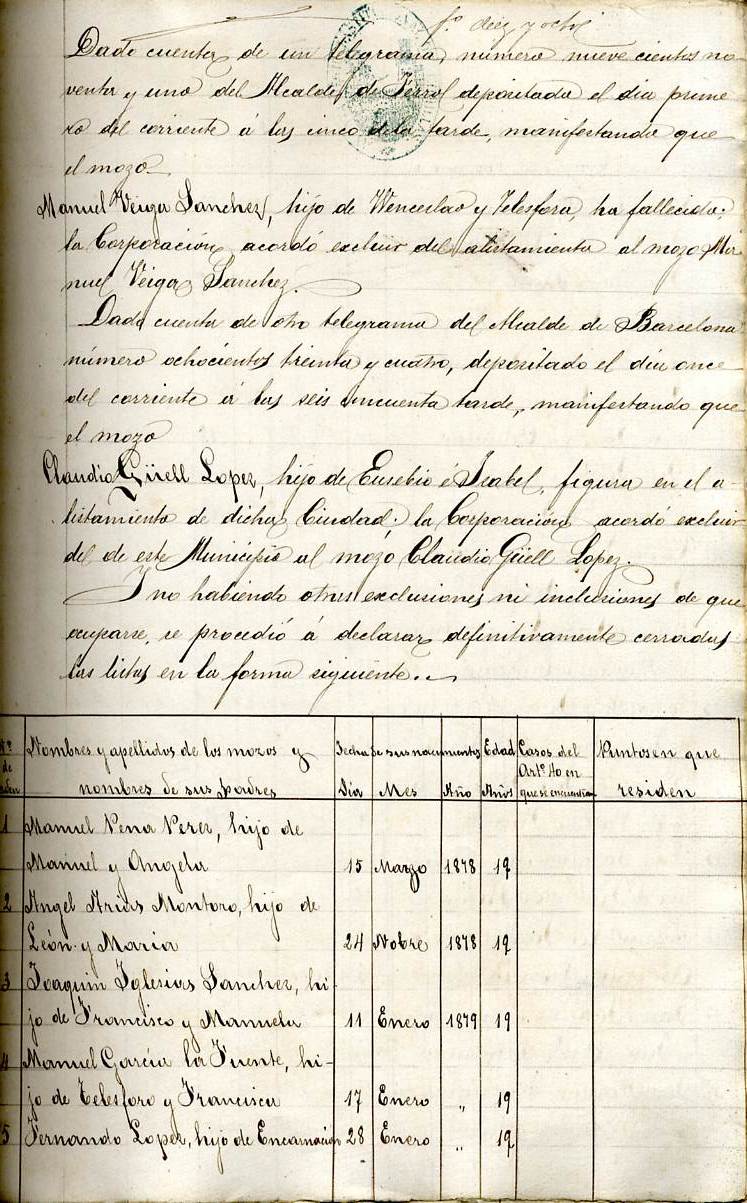 fº diez y ocho
Dado cuenta de un telegrama, número nuevecientos no-
venta y uno del Alcalde de Ferrol depositado el dia prime
ro del corriente á las cinco de la tarde, manifestando que
el mozo
Manuel Veiga Sanchez, hijo de Wenceslao y Telesfora, ha fallecido;
la Corporación acordó excluir del alistamiento al mozo Ma-
nuel Veiga Sanchez.
Dado cuenta de otro telegrama del Alcalde de Barcelona
número ochocientos treinta y cuatro, depositado el dia once
del corriente á las seis cincuenta tarde, manifestando que
el mozo
Claudio Güell Lopez, hijo de Eusebio é Isabel, figura en el a-
listamiento de dicha Ciudad; la Corporación acordó excluir
del de este Municipio al mozo Claudio Güell Lopez.
Y no habiendo otras exclusiones ni inclusiones de que
ocuparse, se procedió á declarar definitivamente cerradas
las listas en la forma siguiente.
Nº de orden Nombres y apellidos de los mozos y nombres de sus padres Fecha de sus nacimientos Edad Casos del Artº 40 en que se encuentran Puntos en que residen
Dia Mes Año Años
1 Manuel Pena Perez, hijo de
Manuel y Angela 15 Marzo 1878 19
2 Angel Arias Montoro, hijo de
León y Maria 24 Nobre 1878 19
3 Joaquin Iglesias Sanchez, hi-
jo de Francisco y Manuela 11 Enero 1879 19
4 Manuel García la Fuente, hi-
jo de Telesforo y Francisca 17 Enero " 19
5 Fernando Lopez, hijo de Encarnacion 28 Enero " 19